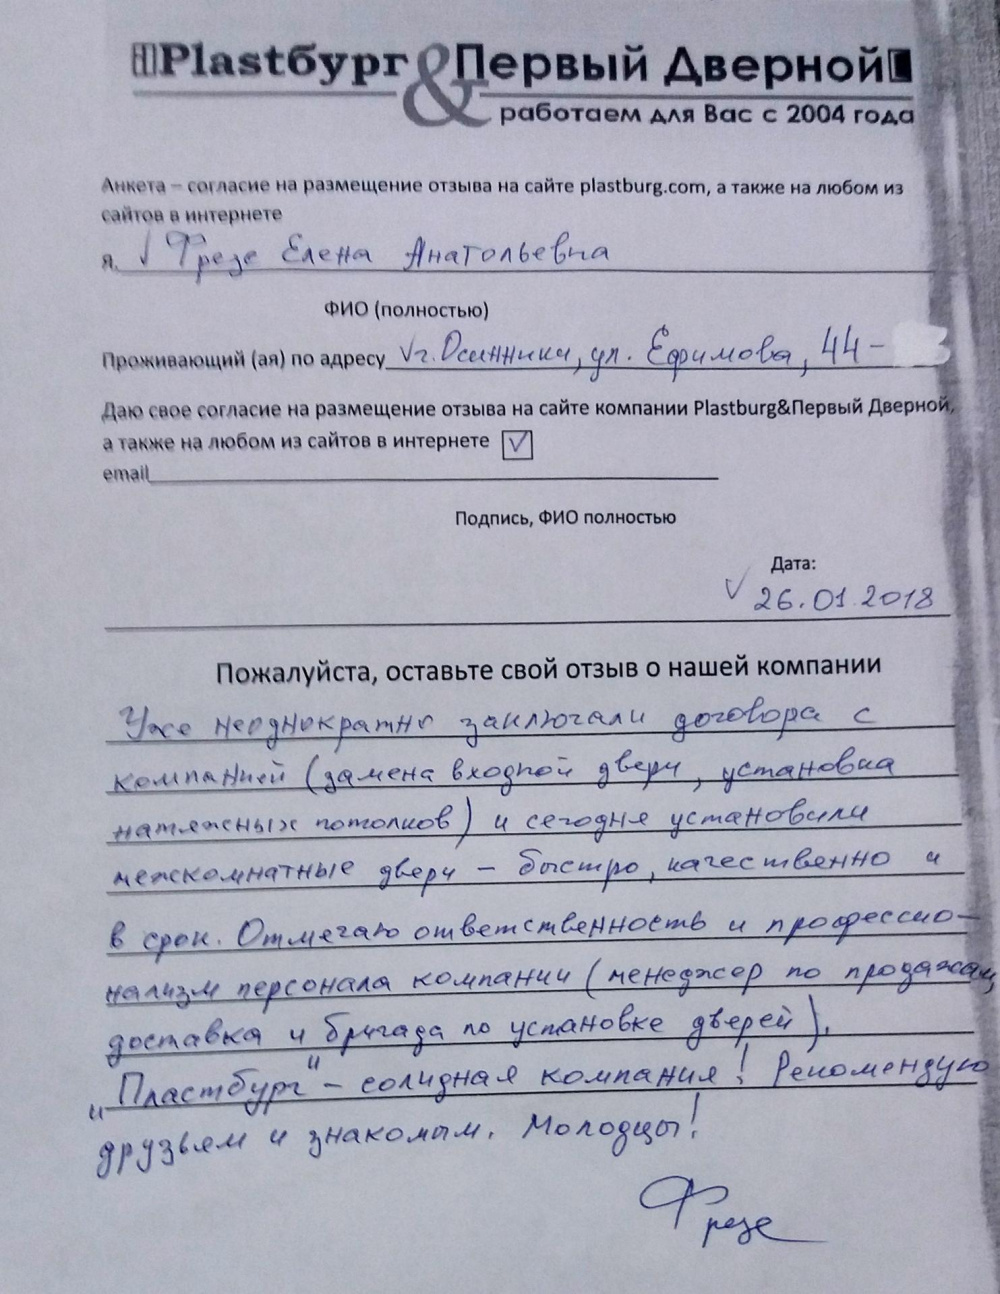 Plastбург & Первый Дверной
работаем для Вас с 2004 года
Анкета – согласие на размещение отзыва на сайте plastburg.com, а также на любом из
сайтов в интернете
я. √ Фрезе Елена Анатольевна
ФИО (полностью)
Проживающий (ая) по адресу √ г. Осинники, ул. Ефимова, 44 –
Даю свое согласие на размещение отзыва на сайте компании Plastburg&Первый Дверной,
а также на любом из сайтов в интернете √
email
Подпись, ФИО полностью
Дата:
√ 26.01.2018
Пожалуйста, оставьте свой отзыв о нашей компании
Уже неоднократно заключали договора с
компанией (замена входной двери, установка
натяжных потолков) и сегодня установили
межкомнатные двери – быстро, качественно и
в срок. Отмечаю ответственность и профессио-
нализм персонала компании (менеджер по продажам,
доставка и бригада по установке дверей).
"Пластбург" – солидная компания! Рекомендую
друзьям и знакомым. Молодцы!
Фрезе